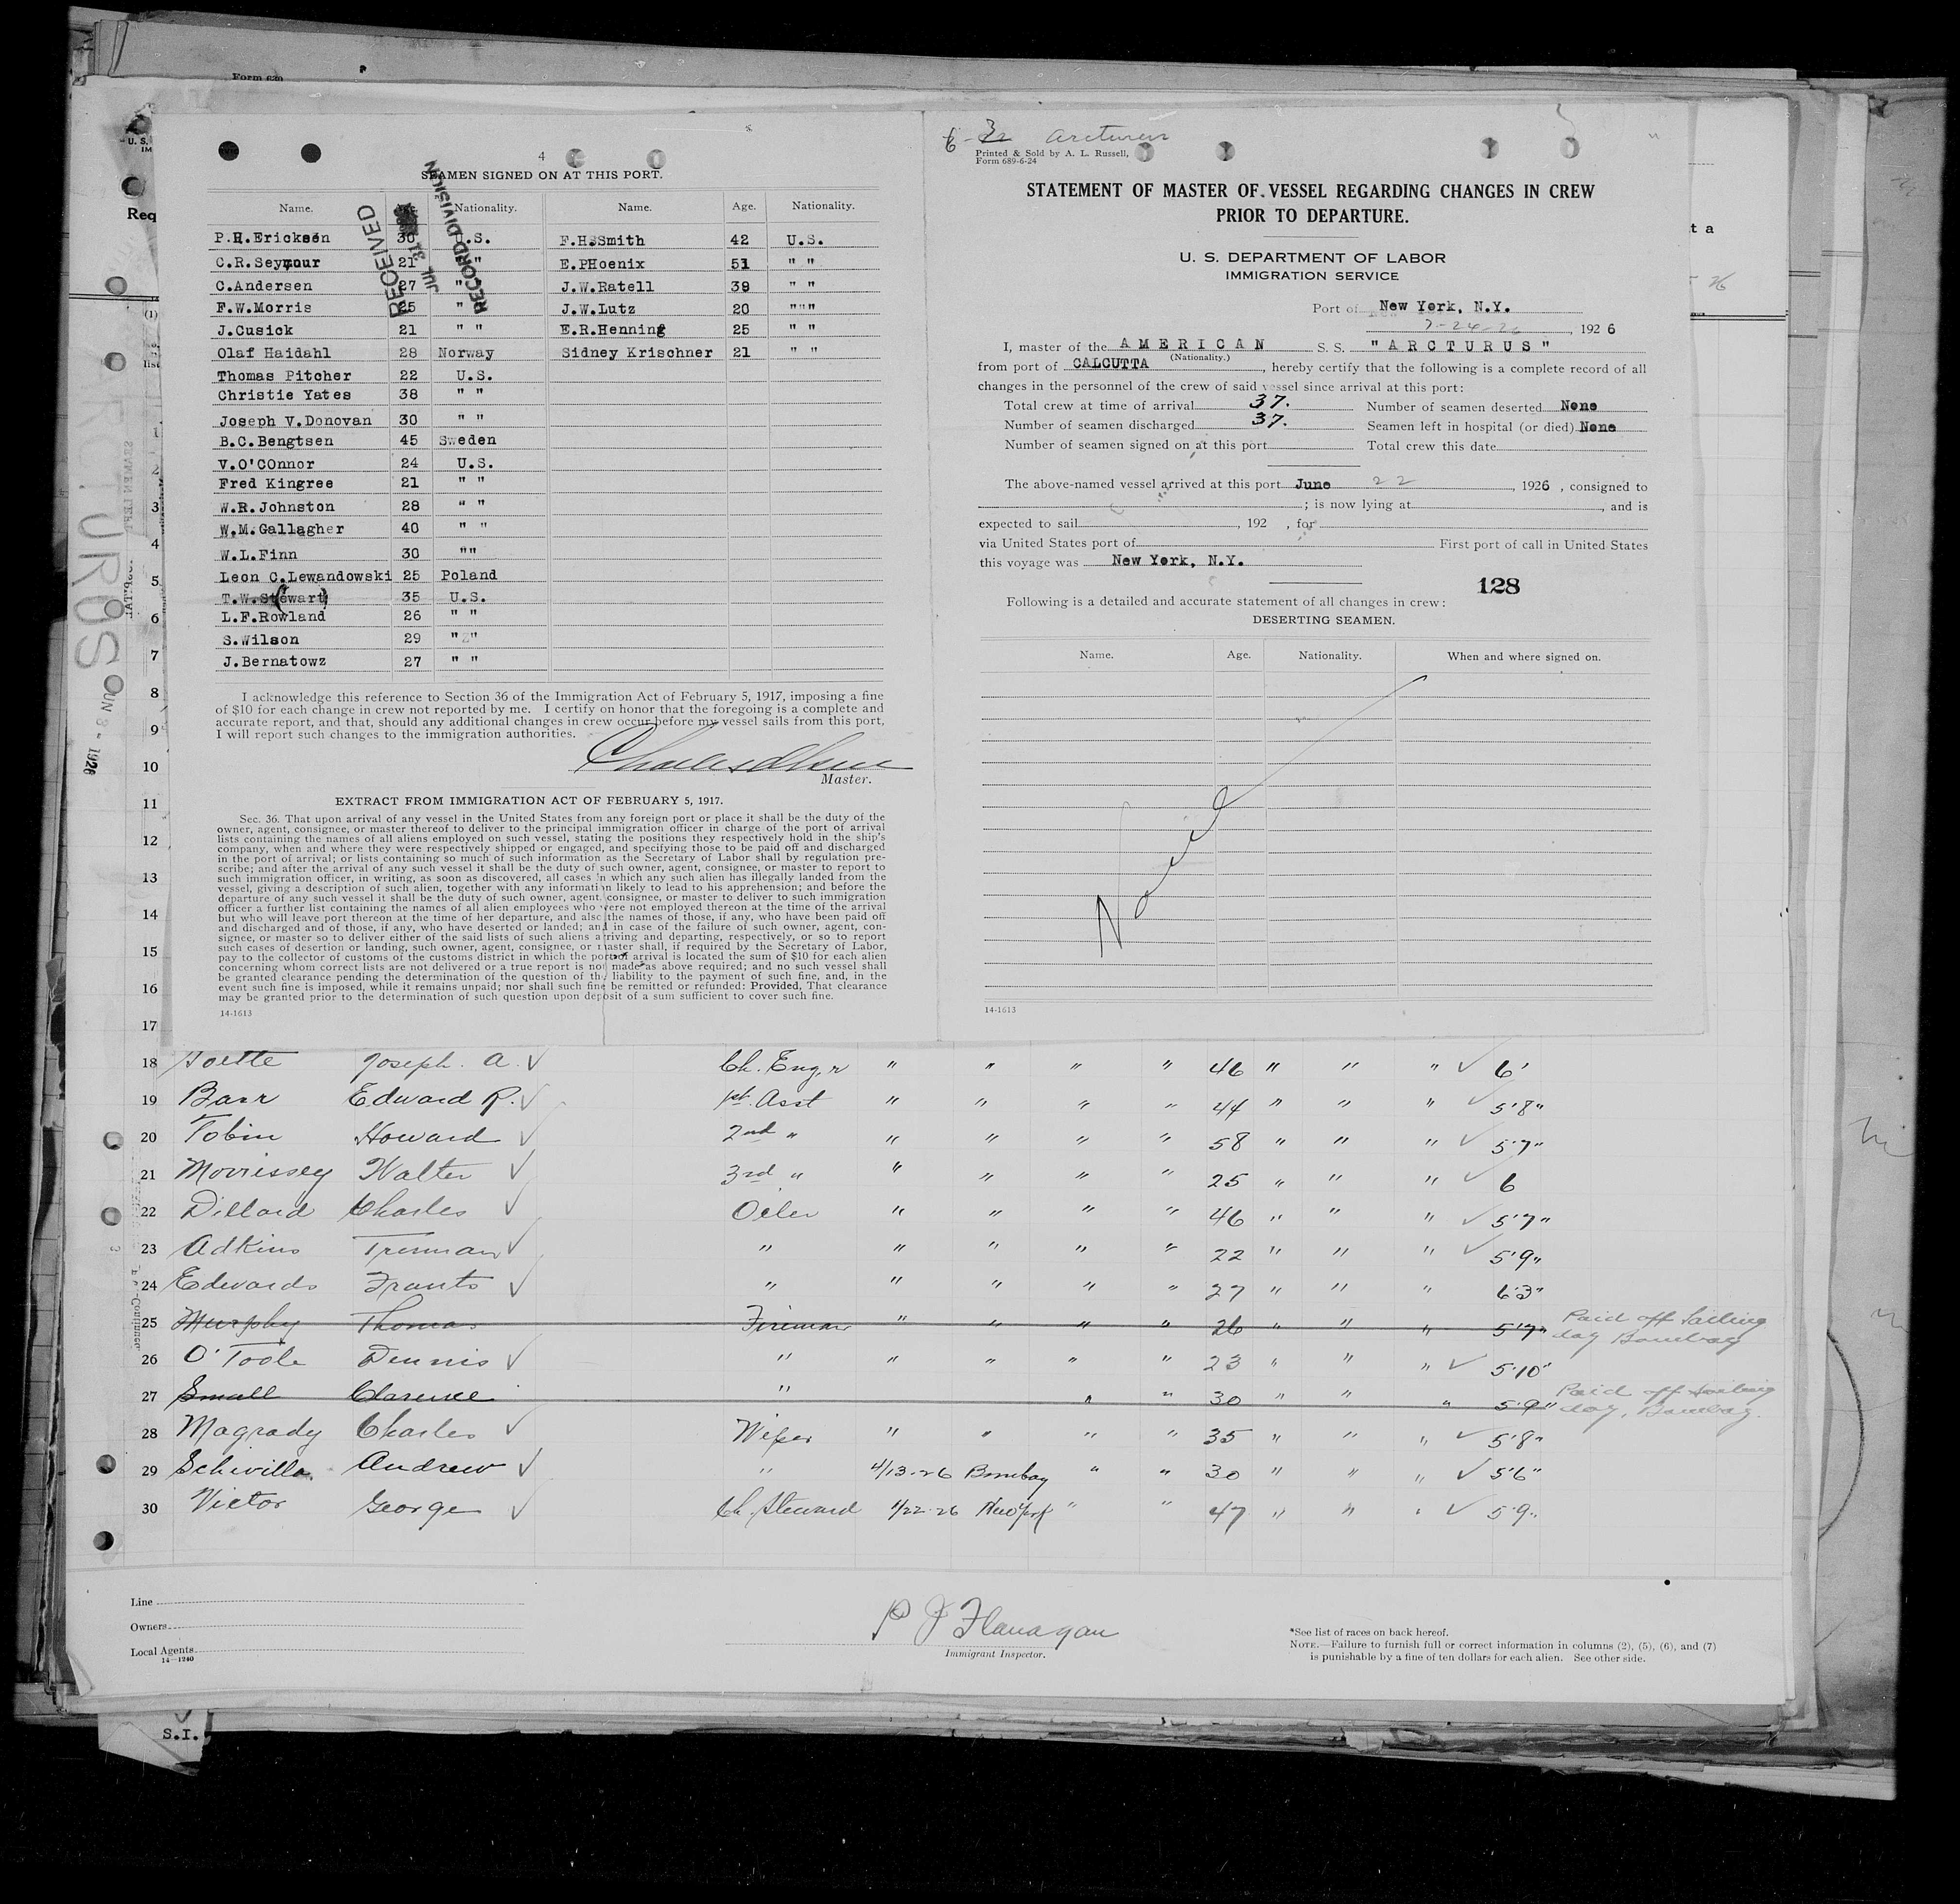 Form 689
4
SEAMEN SIGNED ON AT THIS PORT.
Name. Age. Nationality. Name. Age. Nationality.
RECEIVED
JUL 31
RECORD DIVISION
P.H.Ericksen 30 U.S. F.H.Smith 42 U.S.
C.R.Seymour 21 " " E.PHoenix 51 " "
C.Andersen 27 " " J.W.Ratell 39 " "
F.W.Morris 25 " " J.W.Lutz 20 " " "
J.Cusick 21 " " E.R.Henning 25 " "
Olaf Haidahl 28 Norway Sidney Krischner 21 " "
Thomas Pitcher 22 U.S.
Christie Yates 38 " "
Joseph V.Donovan 30 " "
B.C.Bengtsen 45 Sweden
V.O'COnnor 24 U.S.
Fred Kingree 21 " "
W.R.Johnston 28 " "
W.M.Gallagher 40 " "
W.L.Finn 30 ""
Leon C.Lewandowski 25 Poland
T.W.Stewart 35 U.S.
L.F.Rowland 26 " "
S.Wilson 29 " "
J.Bernatowz 27 " "
I acknowledge this reference to Section 36 of the Immigration Act of February 5, 1917, imposing a fine
of $10 for each change in crew not reported by me. I certify on honor that the foregoing is a complete and
accurate report, and that, should any additional changes in crew occur before my vessel sails from this port,
I will report such changes to the immigration authorities.
Master.
EXTRACT FROM IMMIGRATION ACT OF FEBRUARY 5, 1917.
Sec. 36. That upon arrival of any vessel in the United States from any foreign port or place it shall be the duty of the
owner, agent, consignee, or master thereof to deliver to the principal immigration officer in charge of the port of arrival
lists containing the names of all aliens employed on such vessel, stating the positions they respectively hold in the ship's
company, when and where they were respectively shipped or engaged, and specifying those to be paid off and discharged
in the port of arrival; or lists containing so much of such information as the Secretary of Labor shall by regulation pre-
scribe; and after the arrival of any such vessel it shall be the duty of such owner, agent, consignee, or master to report to
such immigration officer, in writing, as soon as discovered, all cases in which any such alien has illegally landed from the
vessel, giving a description of such alien, together with any information likely to lead to his apprehension; and before the
departure of any such vessel it shall be the duty of such owner, agent, consignee, or master to deliver to such immigration
officer a further list containing the names of all alien employees who were not employed thereon at the time of the arrival
but who will leave port thereon at the time of her departure, and also the names of those, if any, who have been paid off
and discharged and of those, if any, who have deserted or landed; and in case of the failure of such owner, agent, con-
signee, or master so to deliver either of the said lists of such aliens arriving and departing, respectively, or so to report
such cases of desertion or landing, such owner, agent, consignee, or master shall, if required by the Secretary of Labor,
pay to the collector of customs of the customs district in which the port of arrival is located the sum of $10 for each alien
concerning whom correct lists are not delivered or a true report is not made as above required; and no such vessel shall
be granted clearance pending the determination of the question of the liability to the payment of such fine, and, in the
event such fine is imposed, while it remains unpaid; nor shall such fine be remitted or refunded: Provided, That clearance
may be granted prior to the determination of such question upon deposit of a sum sufficient to cover such fine.
14-1613
Arcturus
Printed & Sold by A. L. Russell,
Form 689-6-24
STATEMENT OF MASTER OF VESSEL REGARDING CHANGES IN CREW
PRIOR TO DEPARTURE.
U. S. DEPARTMENT OF LABOR
IMMIGRATION SERVICE
Port of New York, N.Y.
7-24-26, 1926
I, master of the AMERICAN S. S. "ARCTURUS"
(Nationality.)
from port of CALCUTTA, hereby certify that the following is a complete record of all
changes in the personnel of the crew of said vessel since arrival at this port:
Total crew at time of arrival 37. Number of seamen deserted None
Number of seamen discharged 37. Seamen left in hospital (or died) None
Number of seamen signed on at this port Total crew this date
The above-named vessel arrived at this port June 22, 1926, consigned to
; is now lying at , and is
expected to sail , 192 , for
via United States port of First port of call in United States
this voyage was New York, N.Y.
128
Following is a detailed and accurate statement of all changes in crew:
DESERTING SEAMEN.
Name. Age. Nationality. When and where signed on.
None
14-1613
U. S.
IM
Req
(1)
list
ARCTURUS
JUN 3 - 1926
t a
1
2
3
4
5
6
7
8
9
10
11
12
13
14
15
16
17
18 Joseph. A. Ch. Engr " " " " 46 " " " 6'
19 Barr Edward R. 1st. Asst " " " " 44 " " " 5'8"
20 Tobin Howard 2nd " " " " " 58 " " " 5'7"
21 Morrissey Walter 3rd " " " " " 25 " " " 6
22 Dillard Charles Oiler " " " " 46 " " " 5'7"
23 Adkins Truman " " " " " 22 " " " 5'9"
24 Edwards Frants " " " " " 27 " " " 6'3"
25 Murphy Thomas Fireman " " " " 26 " " " 5'7" Paid off Sailing
day Bombay
26 O'Toole Dennis " " " " " 23 " " " 5'10"
27 Small Clarence " " " 30 " " " 5'9" Paid off Sailing
day, Bombay.
28 Magrady Charles Wiper " " " " 35 " " " 5'8"
29 Schivilla Andrew " 4/13-26 Bombay " " 30 " " " 5'6"
30 Victor George Ch. Steward 1/22-26 New York " " 47 " " " 5'9"
Line
Owners
Local Agents
14-1240
P J Flanagan
Immigrant Inspector.
*See list of races on back hereof.
NOTE.—Failure to furnish full or correct information in columns (2), (5), (6), and (7)
is punishable by a fine of ten dollars for each alien. See other side.
S.I.